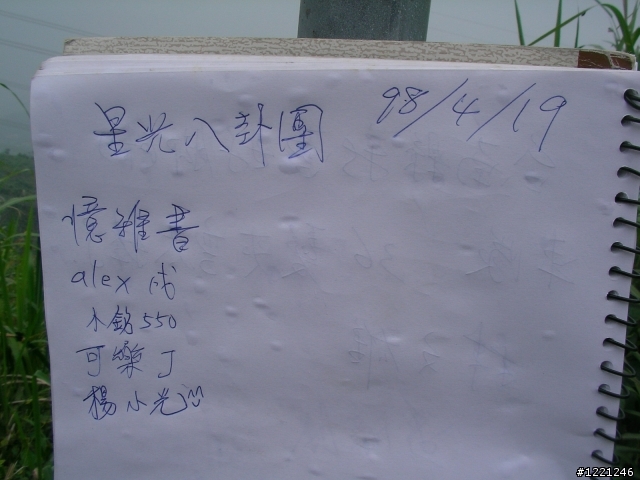 星光八卦團 98/4/19
憶雅書
alex 成
小銘550
可樂丁
楊小光
#1221246